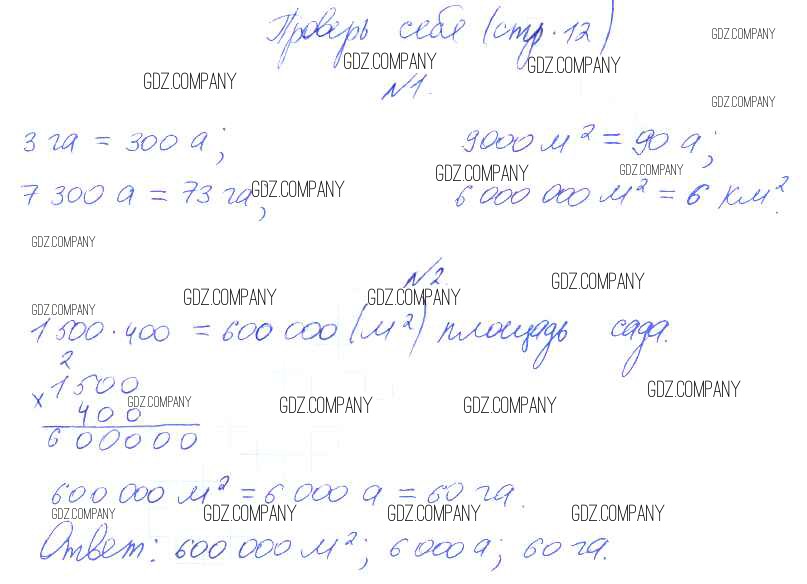 Проверь себя (стр. 12)
GDZ.COMPANY
GDZ.COMPANY GDZ.COMPANY
GDZ.COMPANY
№1.
GDZ.COMPANY
3 га = 300 а; 9000 м² = 90 а;
GDZ.COMPANY GDZ.COMPANY
7 300 а = 73 га; GDZ.COMPANY 6 000 000 м² = 6 км².
GDZ.COMPANY
№2.
GDZ.COMPANY
GDZ.COMPANY GDZ.COMPANY
GDZ.COMPANY
1 500 · 400 = 600 000 (м²) площадь сада.
2
× 1500
400 GDZ.COMPANY GDZ.COMPANY GDZ.COMPANY GDZ.COMPANY
600000
600 000 м² = 6 000 а = 60 га.
GDZ.COMPANY GDZ.COMPANY GDZ.COMPANY GDZ.COMPANY
Ответ: 600 000 м²; 6 000 а; 60 га.